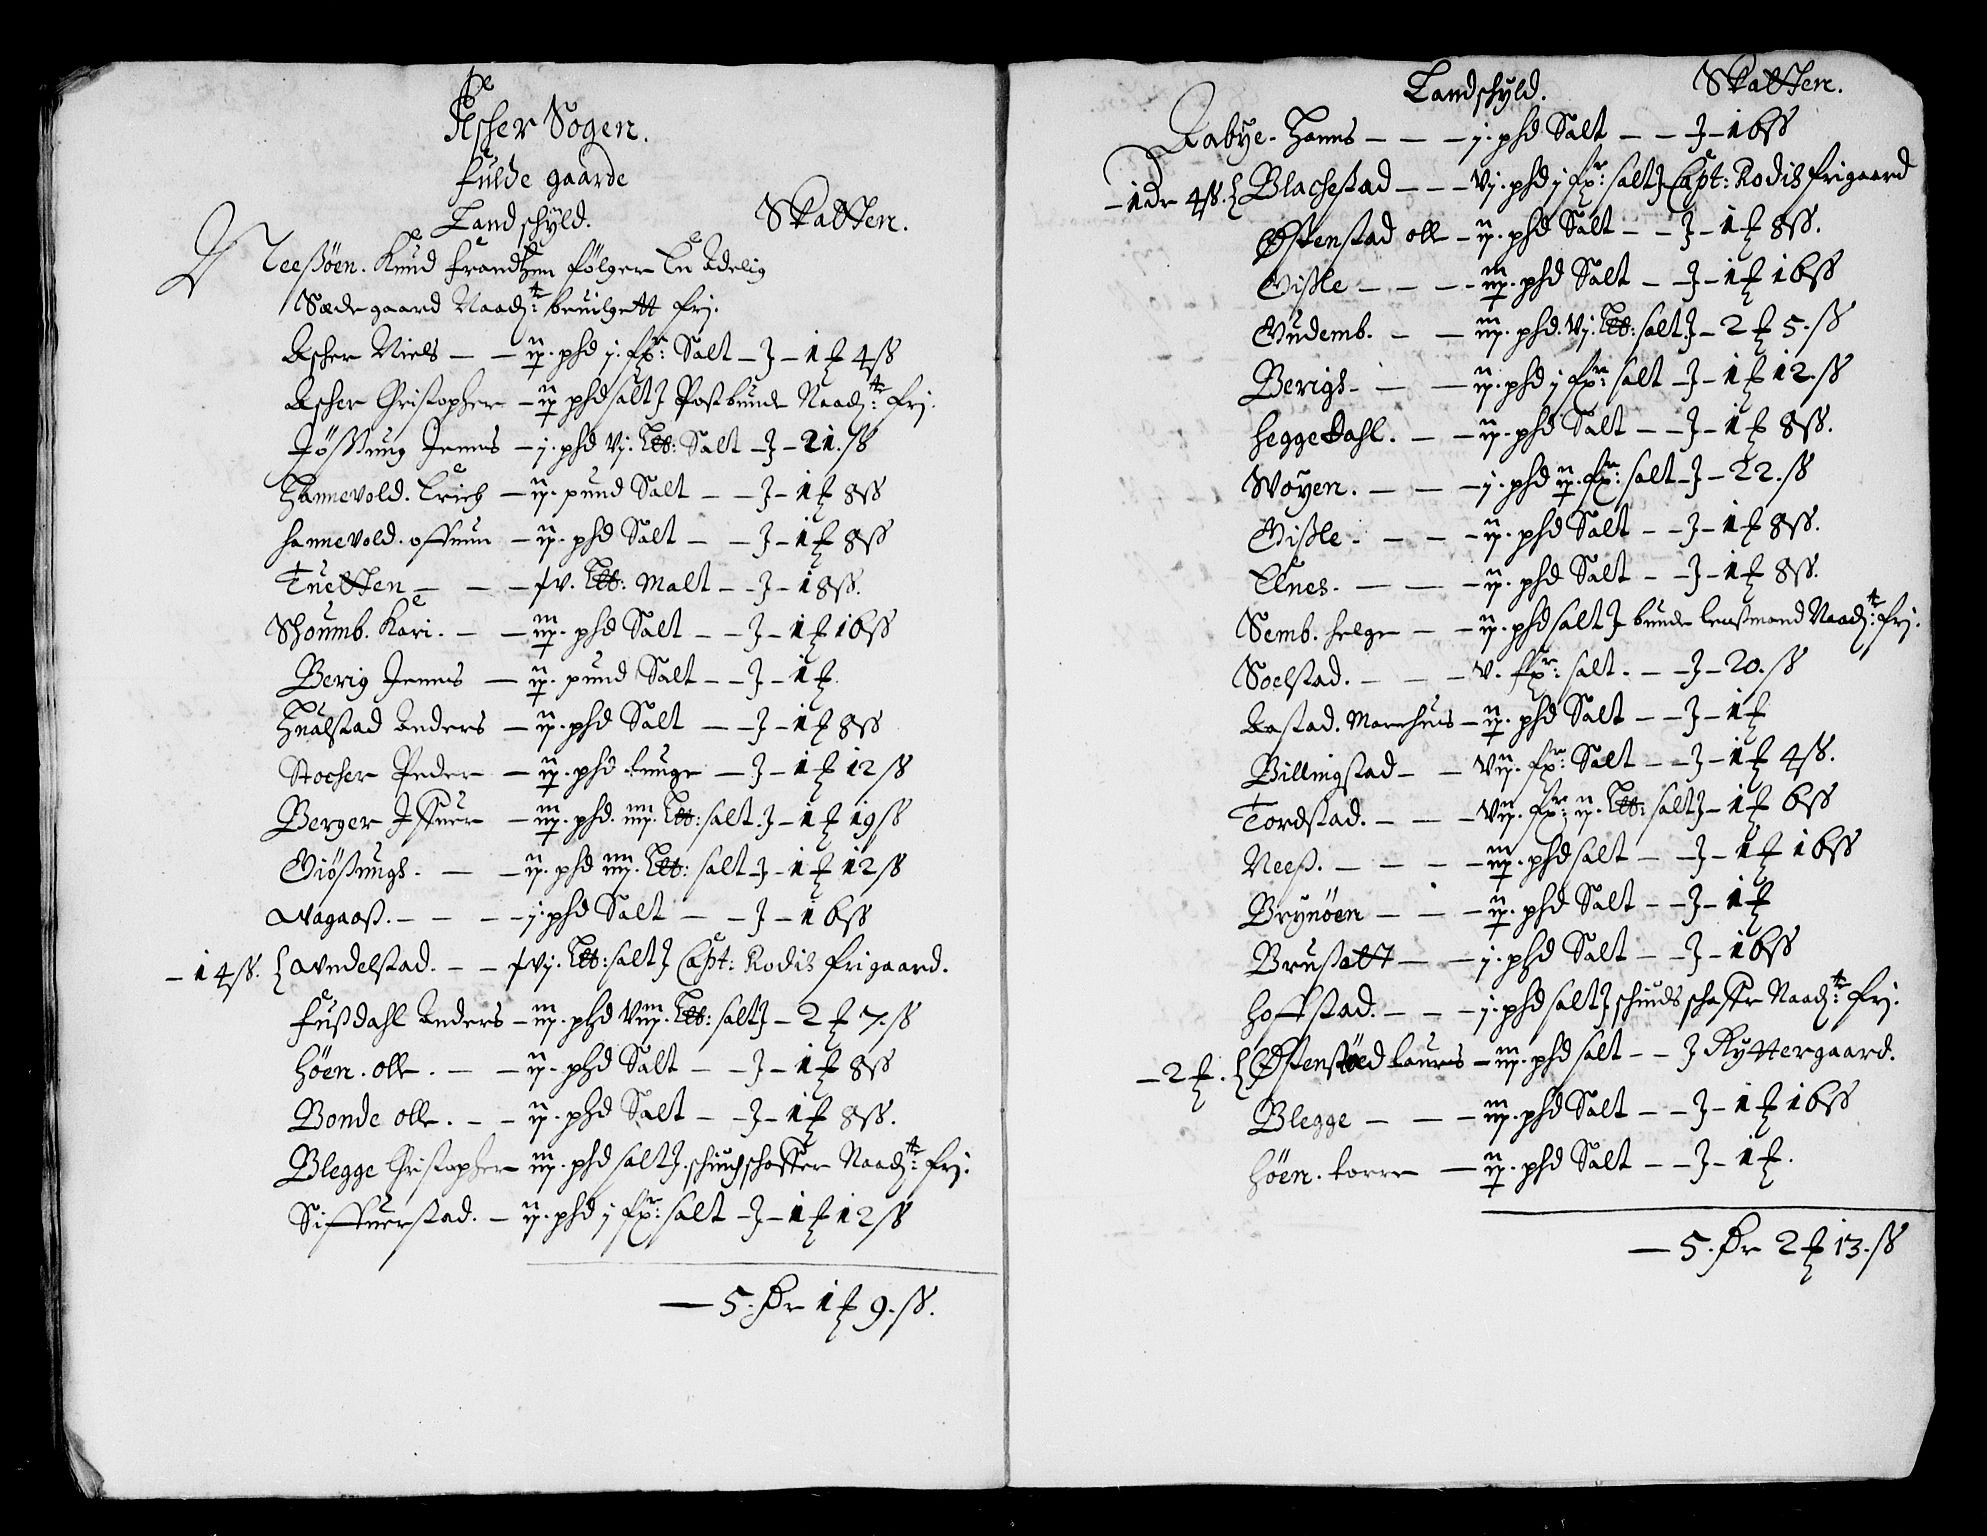 Ascher Sogen.
Fulde gaarde
Landschyld. Skatten.
Neesöen. Knud Frandtzen følger En Adelig
Sædegaard Naadr: beuilgett frj.
Ascher Niels – – ij. phd j. fxr: Salt – J – 1 ƺ 4 ß
Ascher Christopher – ij phd salt J Postbunde Naadr: frj.
Jößung Jenns – j. phd vj. Ltb: Salt – J – 21. ß
Hannevold. Erich – ij. pund Salt – – J – 1 ƺ 8 ß
Hannevold. – ij. phd Salt – – J – 1 ƺ 8 ß
Tuetten – – – fv. Ltb: Malt – – J – 18 ß.
Schoumb. Kari. – – iij. phd Salt – – J – 1 ƺ 16 ß
Berig Jenns – ij. pund Salt – – J – 1 ƺ.
Hualstad Anders – ij. phd Salt – – J – 1 ƺ 8 ß
Stocher Peder – ij. phd tunge – J – 1 ƺ 12 ß
Berger Jffuer – iij. phd. iiij. Ltb: salt. J – 1 ƺ 19 ß
Giößungs. – – ij. phd iiij. Ltb: salt – J – 1 ƺ 12 ß
Vagaaß. – – – j. phd Salt – – J – 16 ß
– 14 ß. { Vndelstad. – – fvj. Ltb: salt J Capt: Rodis frigaard.
Fußdahl Anders – iij. phd viij. Ltb: salt J – 2 ƺ 7. ß
Höen. olle. – – ij. phd Salt – – J – 1 ƺ 8 ß
Bonde olle. – – ij. phd Salt – – J – 1 ƺ 8 ß.
Blegge Christopher iij. phd salt J. schiudschaffer Naadr: frj.
Siffuerstad. – ij. phd j fxr: salt – J – 1 ƺ 12 ß
– 5. Dr 1 ƺ 9. ß.
Landschyld. Skatten.
Aabye. Hanns – – – j. phd Salt – – J – 16 ß
– 1 dr 4 ß. { Blachestad – – – vj. phd j fxr: salt J Capt: Rodis frigaard
Østenstad olle – ij. phd Salt – – J – 1 ƺ 8 ß.
Gißle – – – – iij. phd Salt – – J – 1 ƺ 16 ß
Gudemb. – – iij. phd. vj. Ltb: salt. J – 2 ƺ 5. ß
Berigs. – – ij. phd j fxr: salt – J – 1 ƺ 12. ß
Heggedahl. – – ij. phd Salt – – J – 1 ƺ 8 ß.
Woyen. – – – j. phd ij. fxr: salt – J – 22. ß
Gißle. – – – ij. phd Salt – – J – 1 ƺ 8 ß.
Elnes. – – – ij. phd Salt – – J – 1 ƺ 8 ß.
Semb. helge – – ij. phd salt J bunde lenßmand Naadr: frj.
Soelstad. – – – v. fxr: salt. – – J – 20. ß
Aastad. Marchuis – ij. phd Salt – – J – 1 ƺ
Billingstad – – vij. fxr: Salt – – J – 1 ƺ 4 ß.
Tordstad. – – – vij. fxr: ij. Ltb: salt J – 1 ƺ 6 ß
Neeß. – – – – iij. phd salt – – J – 1 ƺ 16 ß
Brynöen – – – ij. phd Salt – – J – 1 ƺ
Brusatt – – j. phd Salt – – J – 16 ß
Hoffstad. – – – j. phd salt J schiudsschaffer Naadr: frj.
– 2 ƺ. { Østenstad Laures – iij. phd salt – – J Ryttergaard.
Blegge – – – iij. phd Salt – – J – 1 ƺ 16 ß
Höen. torre – ij. phd Salt – – J – 1 ƺ.
– 5. Dr 2 ƺ 13. ß